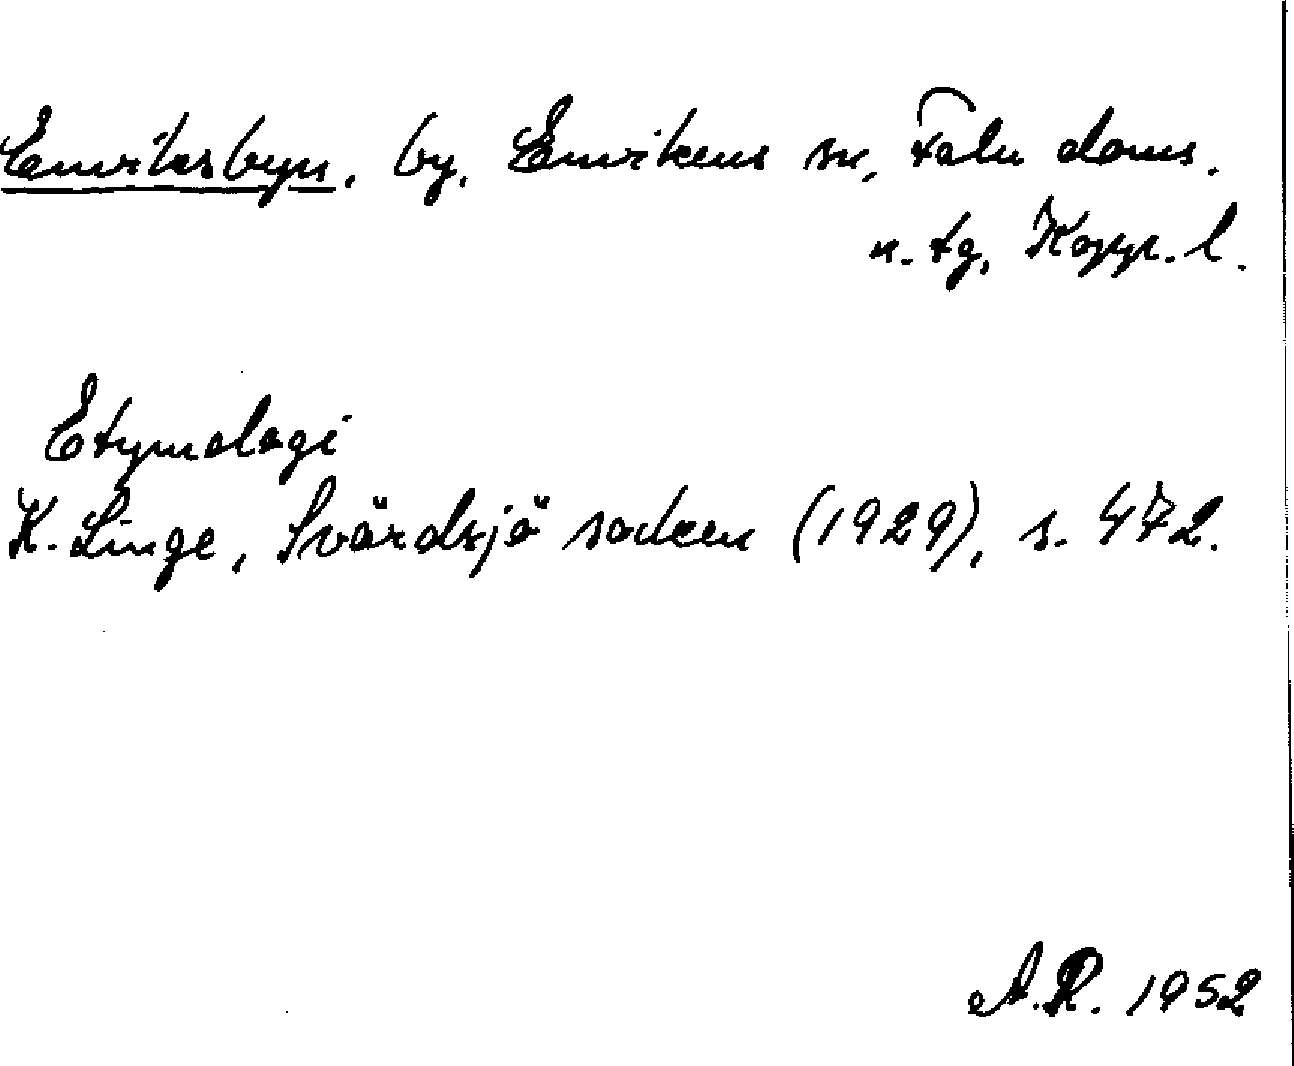 Enviksbyn, by, Envikens sn, Falu doms.
n. tg, Kopp. l.
Etymologi
K. Linge, Svärdsjö socken (1929), s. 472.
A.R. 1952